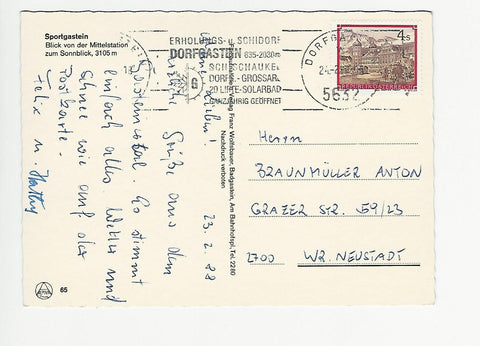 Sportgastein
Blick von der Mittelstation
zum Sonnblick, 3105 m
ERHOLUNGS- u. SCHIDORF
DORFGASTEIN 835-2030m
SCHISCHAUKEL
DORFG.-GROSSARL
20 LIFTE-SOLARBAD
GANZJÄHRIG GEÖFFNET
G
DORFGA
5632
4 S
REPUBLIK ÖSTERREICH
23. 2. 88
Grüße aus dem
Gasteinertal. Es stimmt
einfach alles, Wetter und
Schnee wie auf der
Postkarte.
Felix u.
Franz Wolfsbauer, Badgastein, Am Bahnhofspl., Tel. 2280
Nachdruck verboten
Herrn
BRAUNMÜLLER ANTON
GRAZER STR. 59/23
2700 WR. NEUSTADT
65